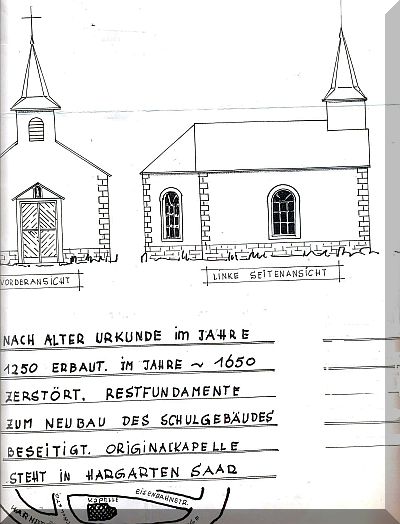 VORDERANSICHT
LINKE SEITENANSICHT
NACH ALTER URKUNDE im JAHRE
1250 ERBAUT. IM JAHRE ~ 1650
ZERSTÖRT. RESTFUNDAMENTE
ZUM NEUBAU DES SCHULGEBÄUDES
BESEITIGT. ORIGINALKAPELLE
STEHT IN HARGARTEN SAAR
KAPELLE
EISENBAHNSTR.